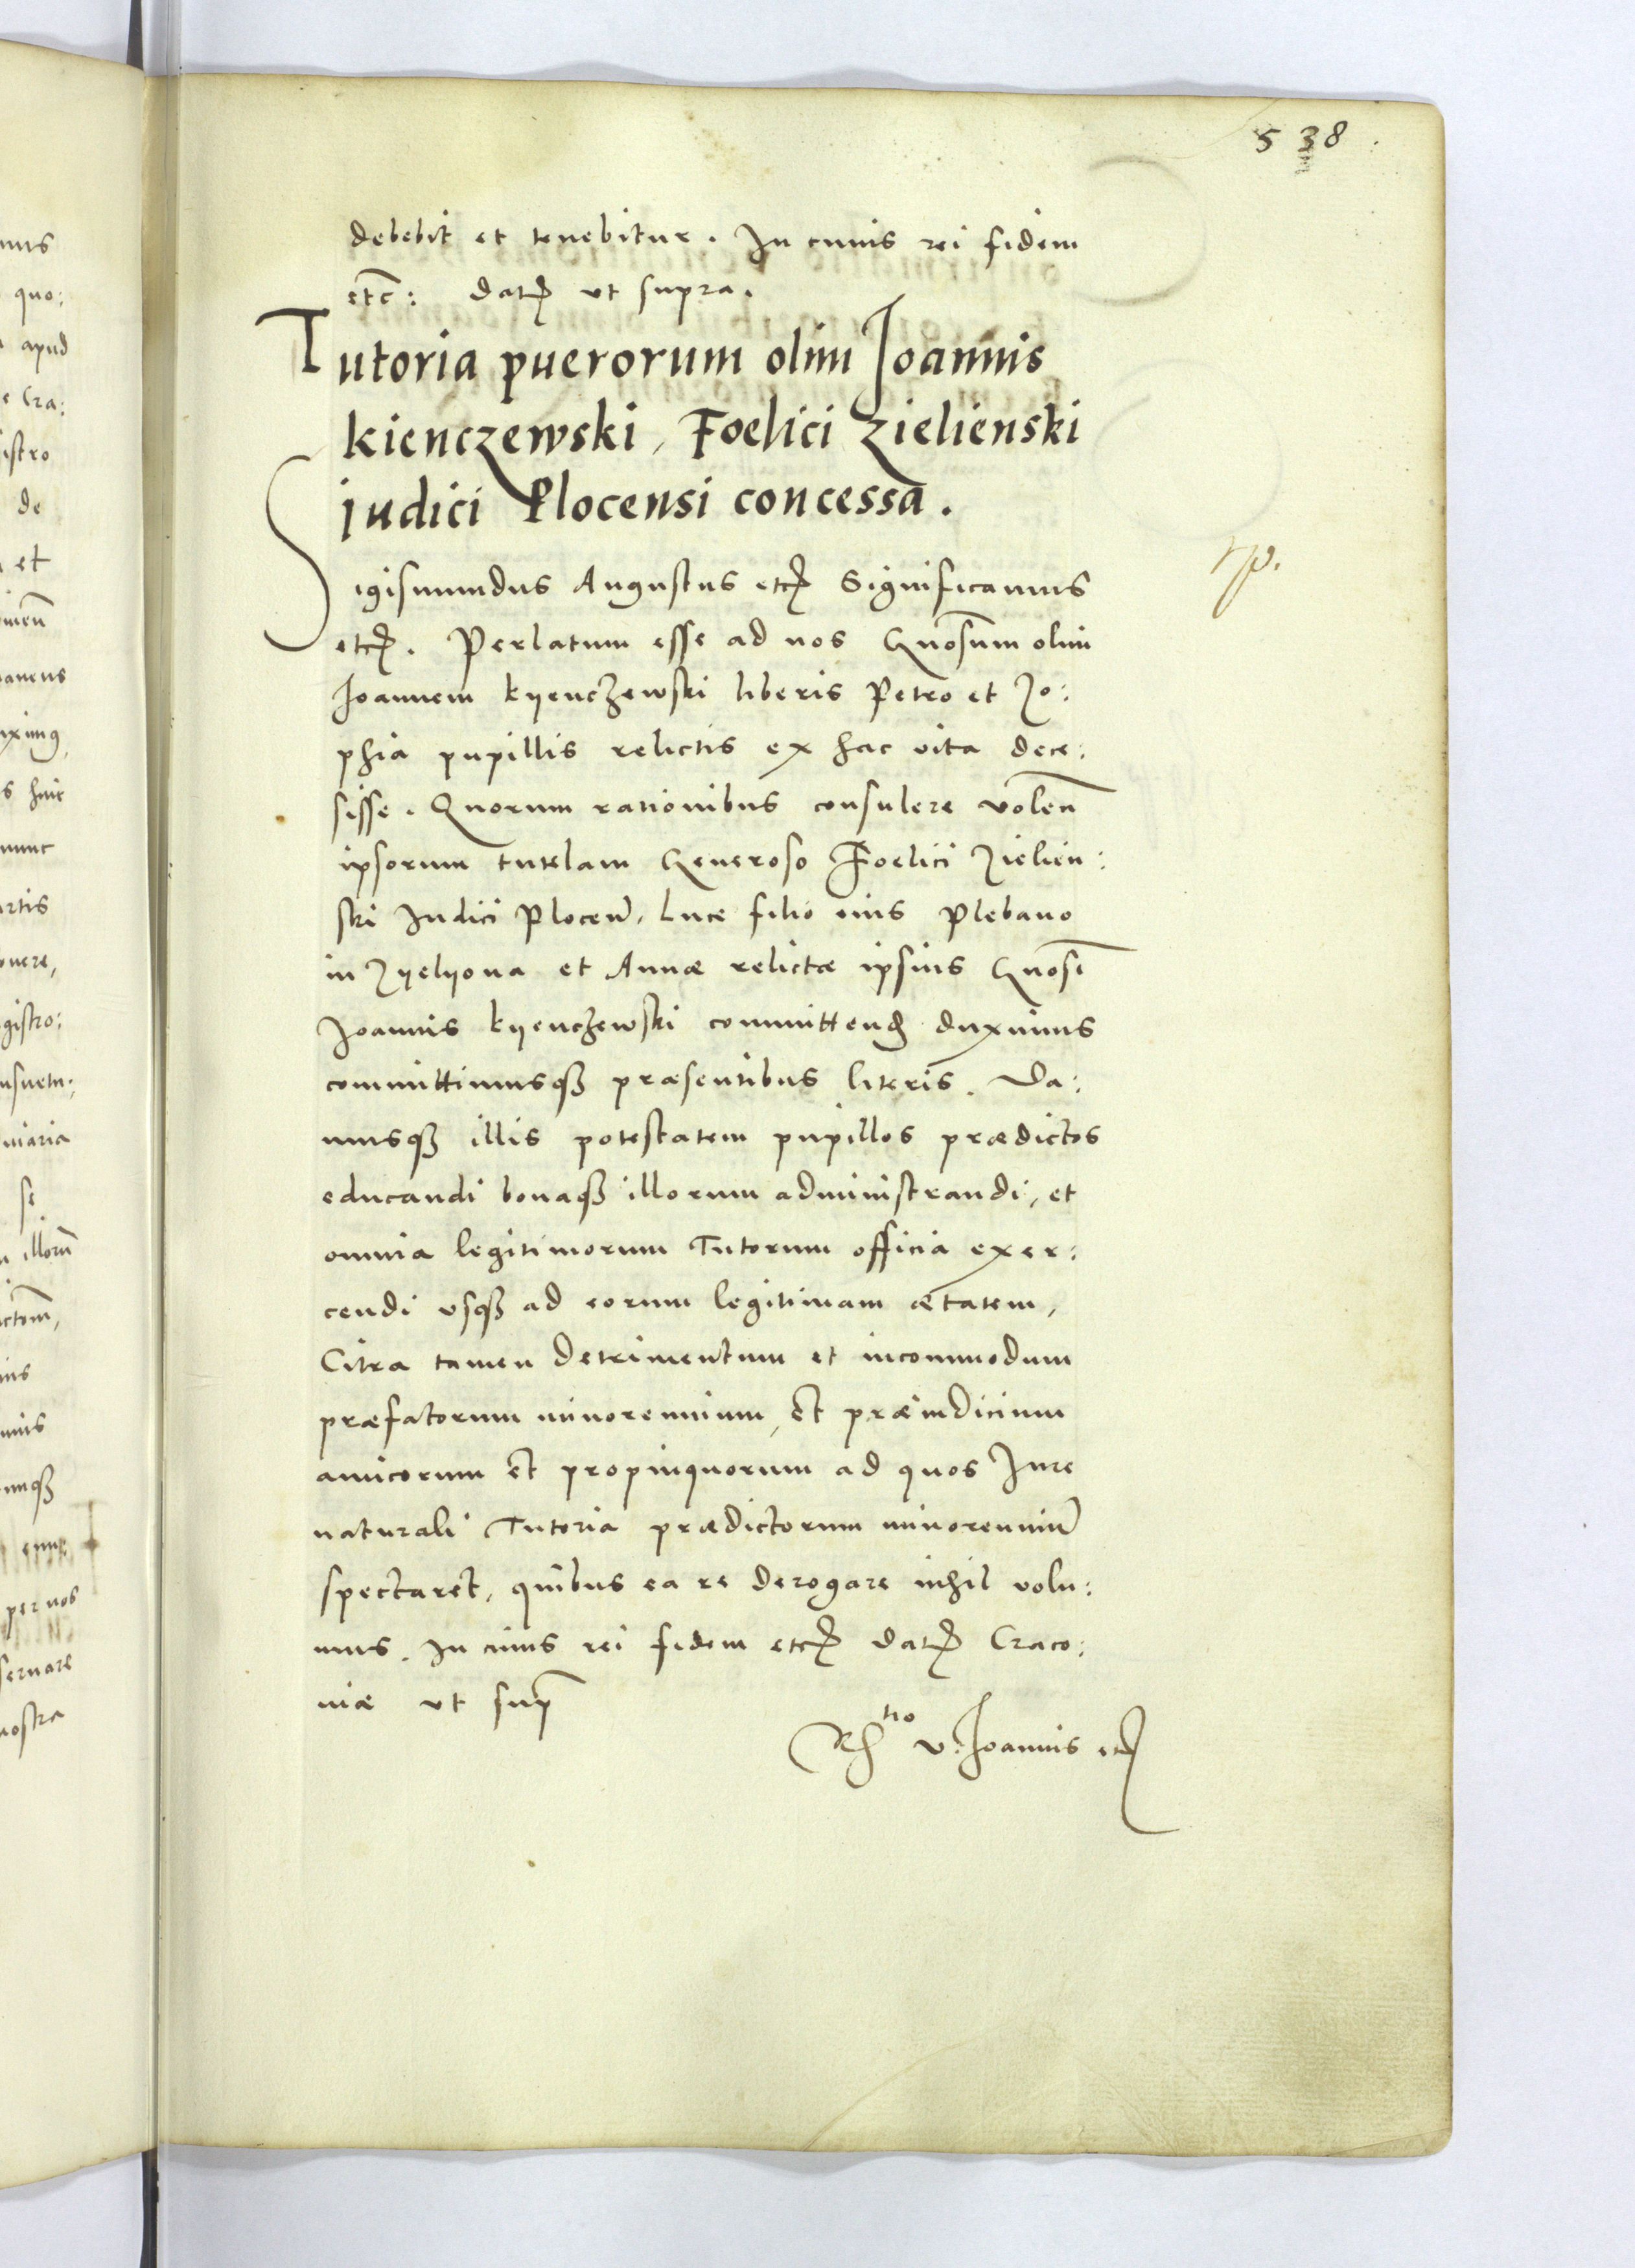 538
debebit et tenebitur. In cuius rei fidem
etc: dat ut supra.
Tutoria puerorum olim Joannis
kienczewski, Foelici Zielienski
judici Plocensi concessa.
Sigismundus Augustus etc Significamus
etc. Perlatum esse ad nos Gnosum olim
Joannem kyenczewski liberis Petro et Zo:
phia pupillis relictis ex hac vita dece:
sisse. Quorum rationibus consulere volen
ipsorum tutelam Generoso Foelici Zielien:
ski Judici Plocen, Luce filio eius Plebano
in Zyelyona et Annæ relictæ ipsius Gnosi
Joannis kyenczewski committend duximus
committimusq præsentibus literis. Da:
musq illis potestatem pupillos prædictos
educandi bonaq illorum administrandi, et
omnia legitimorum Tutorum officia exer:
cendi usq ad eorum legitimam ætatem,
Citra tamen detrimentum et incommodum
præfatorum minorennium, et præiudicium
amicorum et propinquorum ad quos Jure
naturali Tutoria prædictorum minorenniu
spectaret, quibus ea re derogare nihil volu:
mus. In cuius rei fidem etc Dat Craco:
niæ ut sup
Rtio v. Joannis etc